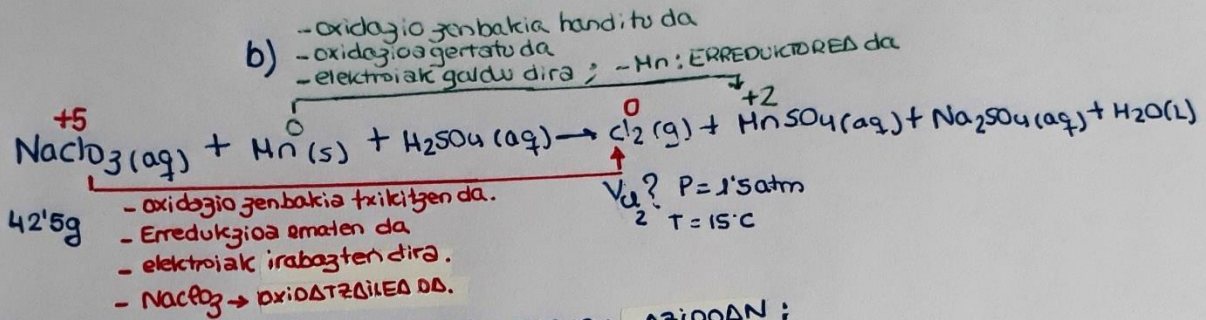 b) - oxidazio zenbakia handitu da
- oxidazioa gertatu da
- elektroiak galdu dira ; - Mn : ERREDUKTOREA da
+5 0 0 +2
NaClO3 (aq) + Mn (s) + H2SO4 (aq) → Cl2 (g) + MnSO4 (aq) + Na2SO4 (aq) + H2O (L)
42'5g
VCl2? P = 1'5 atm
T = 15°C
- oxidazio zenbakia txikitzen da.
- Erredukzioa ematen da
- elektroiak irabazten dira.
- NaClO3 → OXIDATZAILEA DA.
AZIDOAN :